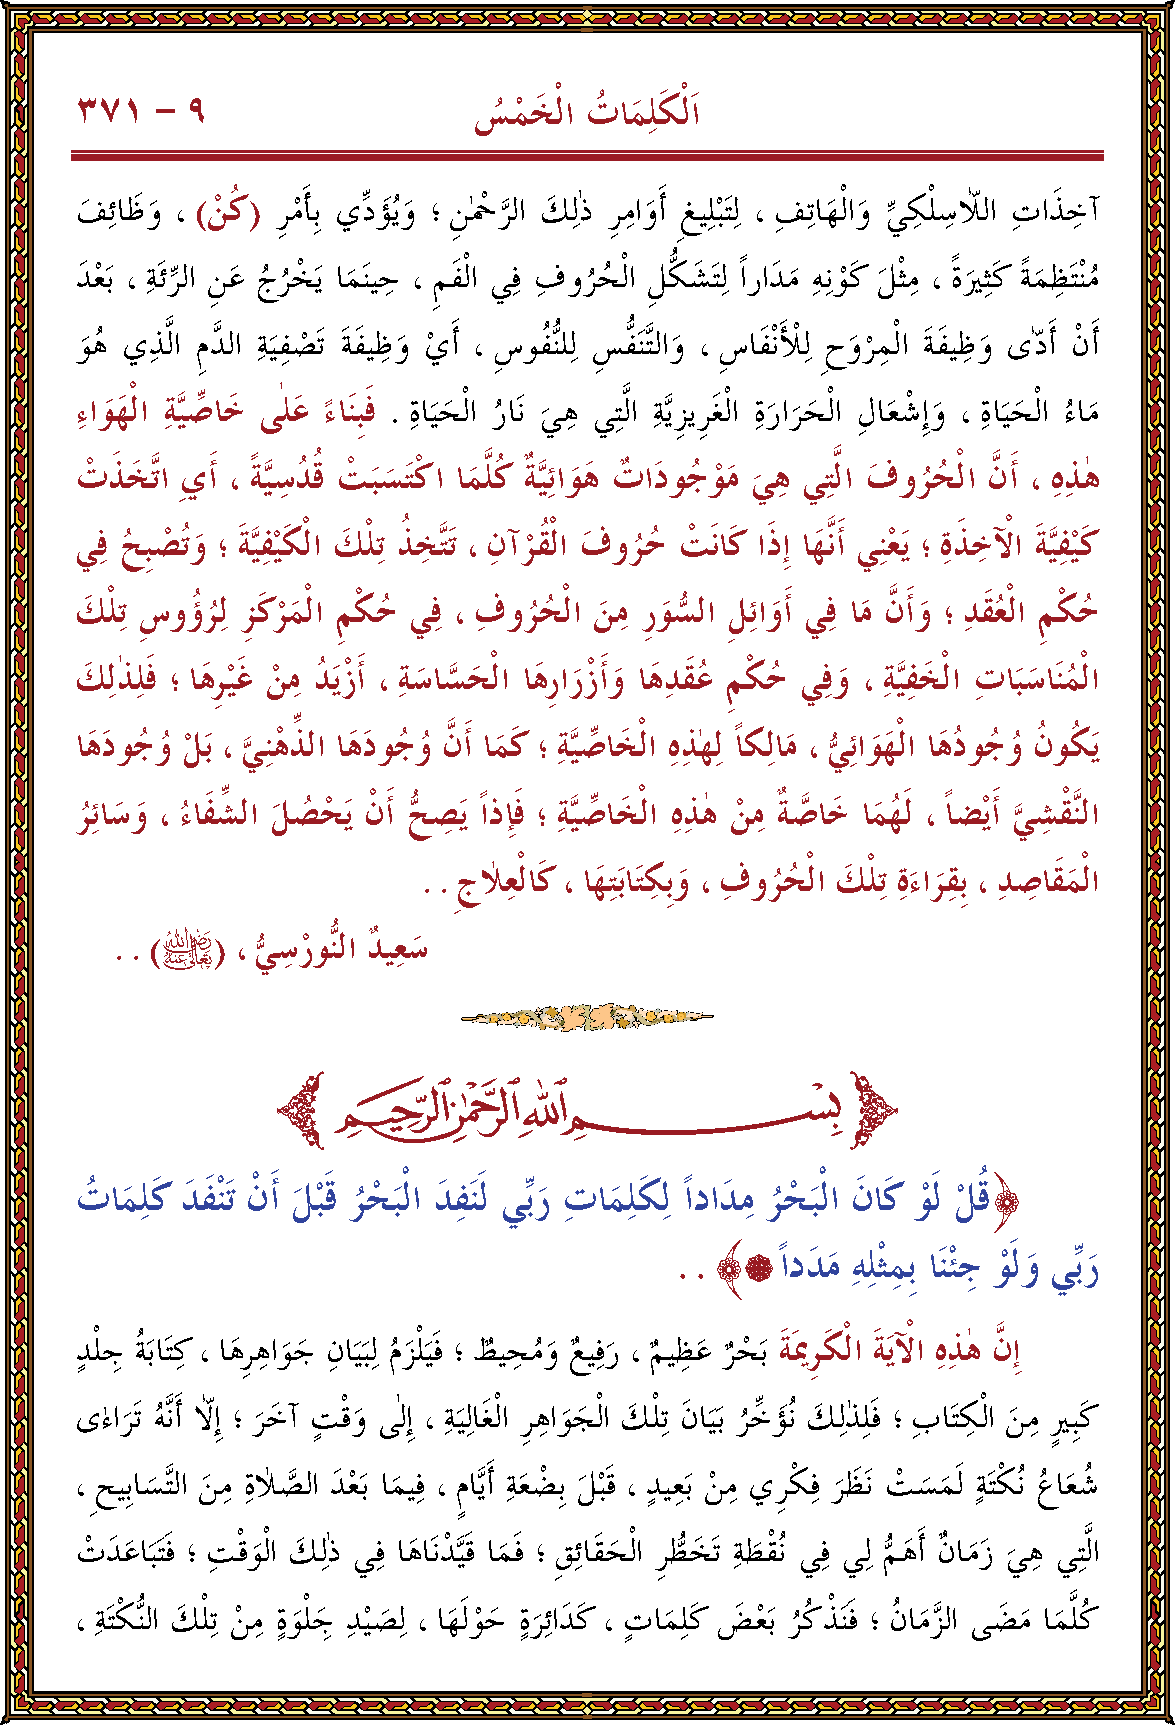 اَلْكَلِمَاتُ الْخَمْسُ ٩ - ٣٧١
آخِذَاتِ اللّاَسِلْكِيِّ وَالْهَاتِفِ ، لِتَبْلِيغِ أَوَامِرِ ذٰلِكَ الرَّحْمٰنِ ؛ وَيُؤَدِّي بِأَمْرِ (كُنْ) ، وَظَائِفَ
مُنْتَظِمَةً كَثِيرَةً ، مِثْلَ كَوْنِهِ مَدَاراً لِتَشَكُّلِ الْحُرُوفِ فِي الْفَمِ ، حِينَمَا يَخْرُجُ عَنِ الرِّئَةِ ، بَعْدَ
أَنْ أَدّٰى وَظِيفَةَ الْمِرْوَحِ لِلْأَنْفَاسِ ، وَالتَّنَفُّسِ لِلنُّفُوسِ ، أَيْ وَظِيفَةَ تَصْفِيَةِ الدَّمِ الَّذِي هُوَ
مَاءُ الْحَيَاةِ ، وَإِشْعَالِ الْحَرَارَةِ الْغَرِيزِيَّةِ الَّتِي هِيَ نَارُ الْحَيَاةِ . فَبِنَاءً عَلٰى خَاصِّيَّةِ الْهَوَاءِ
هٰذِهِ ، أَنَّ الْحُرُوفَ الَّتِي هِيَ مَوْجُودَاتٌ هَوَائِيَّةٌ كُلَّمَا اكْتَسَبَتْ قُدْسِيَّةً ، أَيِ اتَّخَذَتْ
كَيْفِيَّةَ الْآخِذَةِ ؛ يَعْنِي أَنَّهَا إِذَا كَانَتْ حُرُوفَ الْقُرْآنِ ، تَتَّخِذُ تِلْكَ الْكَيْفِيَّةَ ؛ وَتُصْبِحُ فِي
حُكْمِ الْعُقَدِ ؛ وَأَنَّ مَا فِي أَوَائِلِ السُّوَرِ مِنَ الْحُرُوفِ ، فِي حُكْمِ الْمَرْكَزِ لِرُؤُوسِ تِلْكَ
الْمُنَاسَبَاتِ الْخَفِيَّةِ ، وَفِي حُكْمِ عُقَدِهَا وَأَزْرَارِهَا الْحَسَّاسَةِ ، أَزْيَدُ مِنْ غَيْرِهَا ؛ فَلِذٰلِكَ
يَكُونُ وُجُودُهَا الْهَوَائِيُّ ، مَالِكاً لِهٰذِهِ الْخَاصِّيَّةِ ؛ كَمَا أَنَّ وُجُودَهَا الذِّهْنِيَّ ، بَلْ وُجُودَهَا
النَّقْشِيَّ أَيْضاً ، لَهُمَا خَاصَّةٌ مِنْ هٰذِهِ الْخَاصِّيَّةِ ؛ فَإِذاً يَصِحُّ أَنْ يَحْصُلَ الشِّفَاءُ ، وَسَائِرُ
الْمَقَاصِدِ ، بِقِرَاءَةِ تِلْكَ الْحُرُوفِ ، وَبِكِتَابَتِهَا ، كَالْعِلَاجِ . .
سَعِيدٌ النُّورْسِيُّ ، (رضي الله تعالى عنه) . .
بِسْمِ اللهِ الرَّحْمٰنِ الرَّحِيمِ
﴿قُلْ لَوْ كَانَ الْبَحْرُ مِدَاداً لِكَلِمَاتِ رَبِّي لَنَفِدَ الْبَحْرُ قَبْلَ أَنْ تَنْفَدَ كَلِمَاتُ
رَبِّي وَلَوْ جِئْنَا بِمِثْلِهِ مَدَداً﴾ . .
إِنَّ هٰذِهِ الْآيَةَ الْكَرِيمَةَ بَحْرٌ عَظِيمٌ ، رَفِيعٌ وَمُحِيطٌ ؛ فَيَلْزَمُ لِبَيَانِ جَوَاهِرِهَا ، كِتَابَةُ جِلْدٍ
كَبِيرٍ مِنَ الْكِتَابِ ؛ فَلِذٰلِكَ نُؤَخِّرُ بَيَانَ تِلْكَ الْجَوَاهِرِ الْغَالِيَةِ ، إِلٰى وَقْتٍ آخَرَ ؛ إِلاّ أَنَّهُ تَرَاءٰى
شُعَاعُ نُكْتَةٍ لَمَسَتْ نَظَرَ فِكْرِي مِنْ بَعِيدٍ ، قَبْلَ بِضْعَةِ أَيَّامٍ ، فِيمَا بَعْدَ الصَّلَاةِ مِنَ التَّسَابِيحِ ،
الَّتِي هِيَ زَمَانٌ أَهَمُّ لِي فِي نُقْطَةِ تَخَطُّرِ الْحَقَائِقِ ؛ فَمَا قَيَّدْنَاهَا فِي ذٰلِكَ الْوَقْتِ ؛ فَتَبَاعَدَتْ
كُلَّمَا مَضَى الزَّمَانُ ؛ فَنَذْكُرُ بَعْضَ كَلِمَاتٍ ، كَدَائِرَةٍ حَوْلَهَا ، لِصَيْدِ جَلْوَةٍ مِنْ تِلْكَ النُّكْتَةِ ،